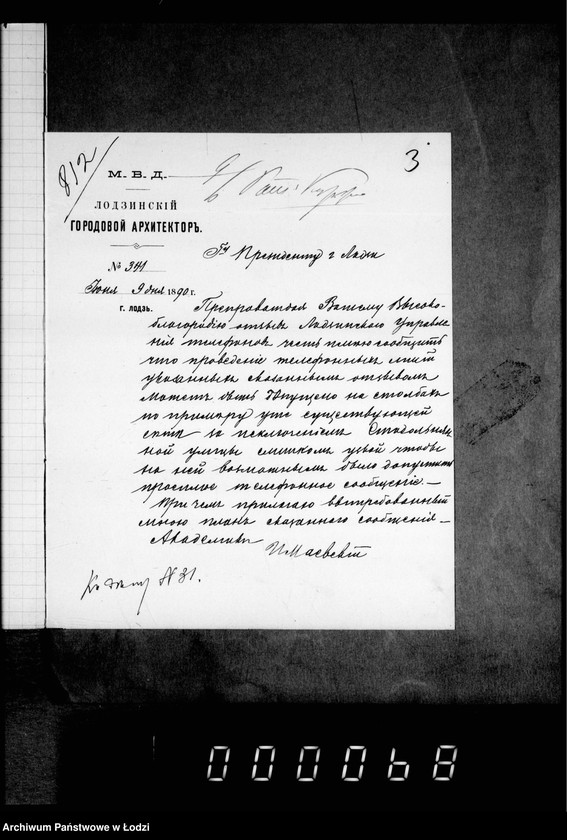 3
812
М. В. Д.
ЛОДЗИНСКІЙ
ГОРОДОВОЙ АРХИТЕКТОРЪ.
№ 341
Июня 9 дня 1890 г.
г. лодзь.
Гну Президенту г. Лодзи
Препровождая Вашему Высоко-
благородію отзывъ Лодзинскаго Управле
нія телефоновъ честь имѣю сообщить
что проведеніе телефонныхъ линій
указанныхъ сказаннымъ отзывомъ
можетъ быть допущено на столбахъ
по примѣру уже существующей
сѣти за исключеніемъ
ной улицы слишкомъ узкой чтобы
на ней возможнымъ было допустить
телефонное сообщеніе. —
При чемъ прилагаю вытребованный
мною планъ сказаннаго сообщенія —
Академикъ
И Маевскій
Къ дѣлу № 31.
000068
Archiwum Państwowe w Łodzi